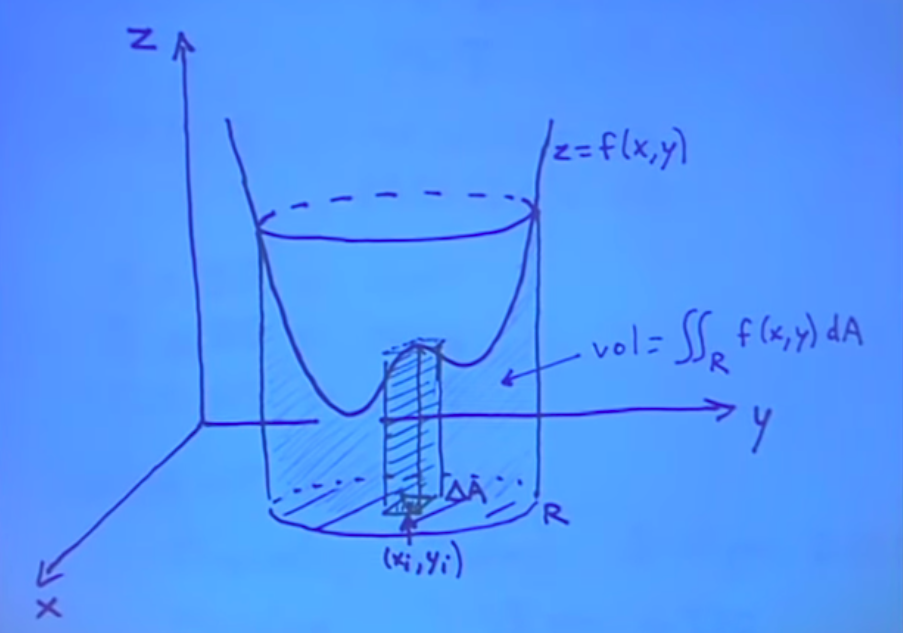 z
z=f(x,y)
vol=∬_R f(x,y) dA
y
ΔA
R
(xi,yi)
x